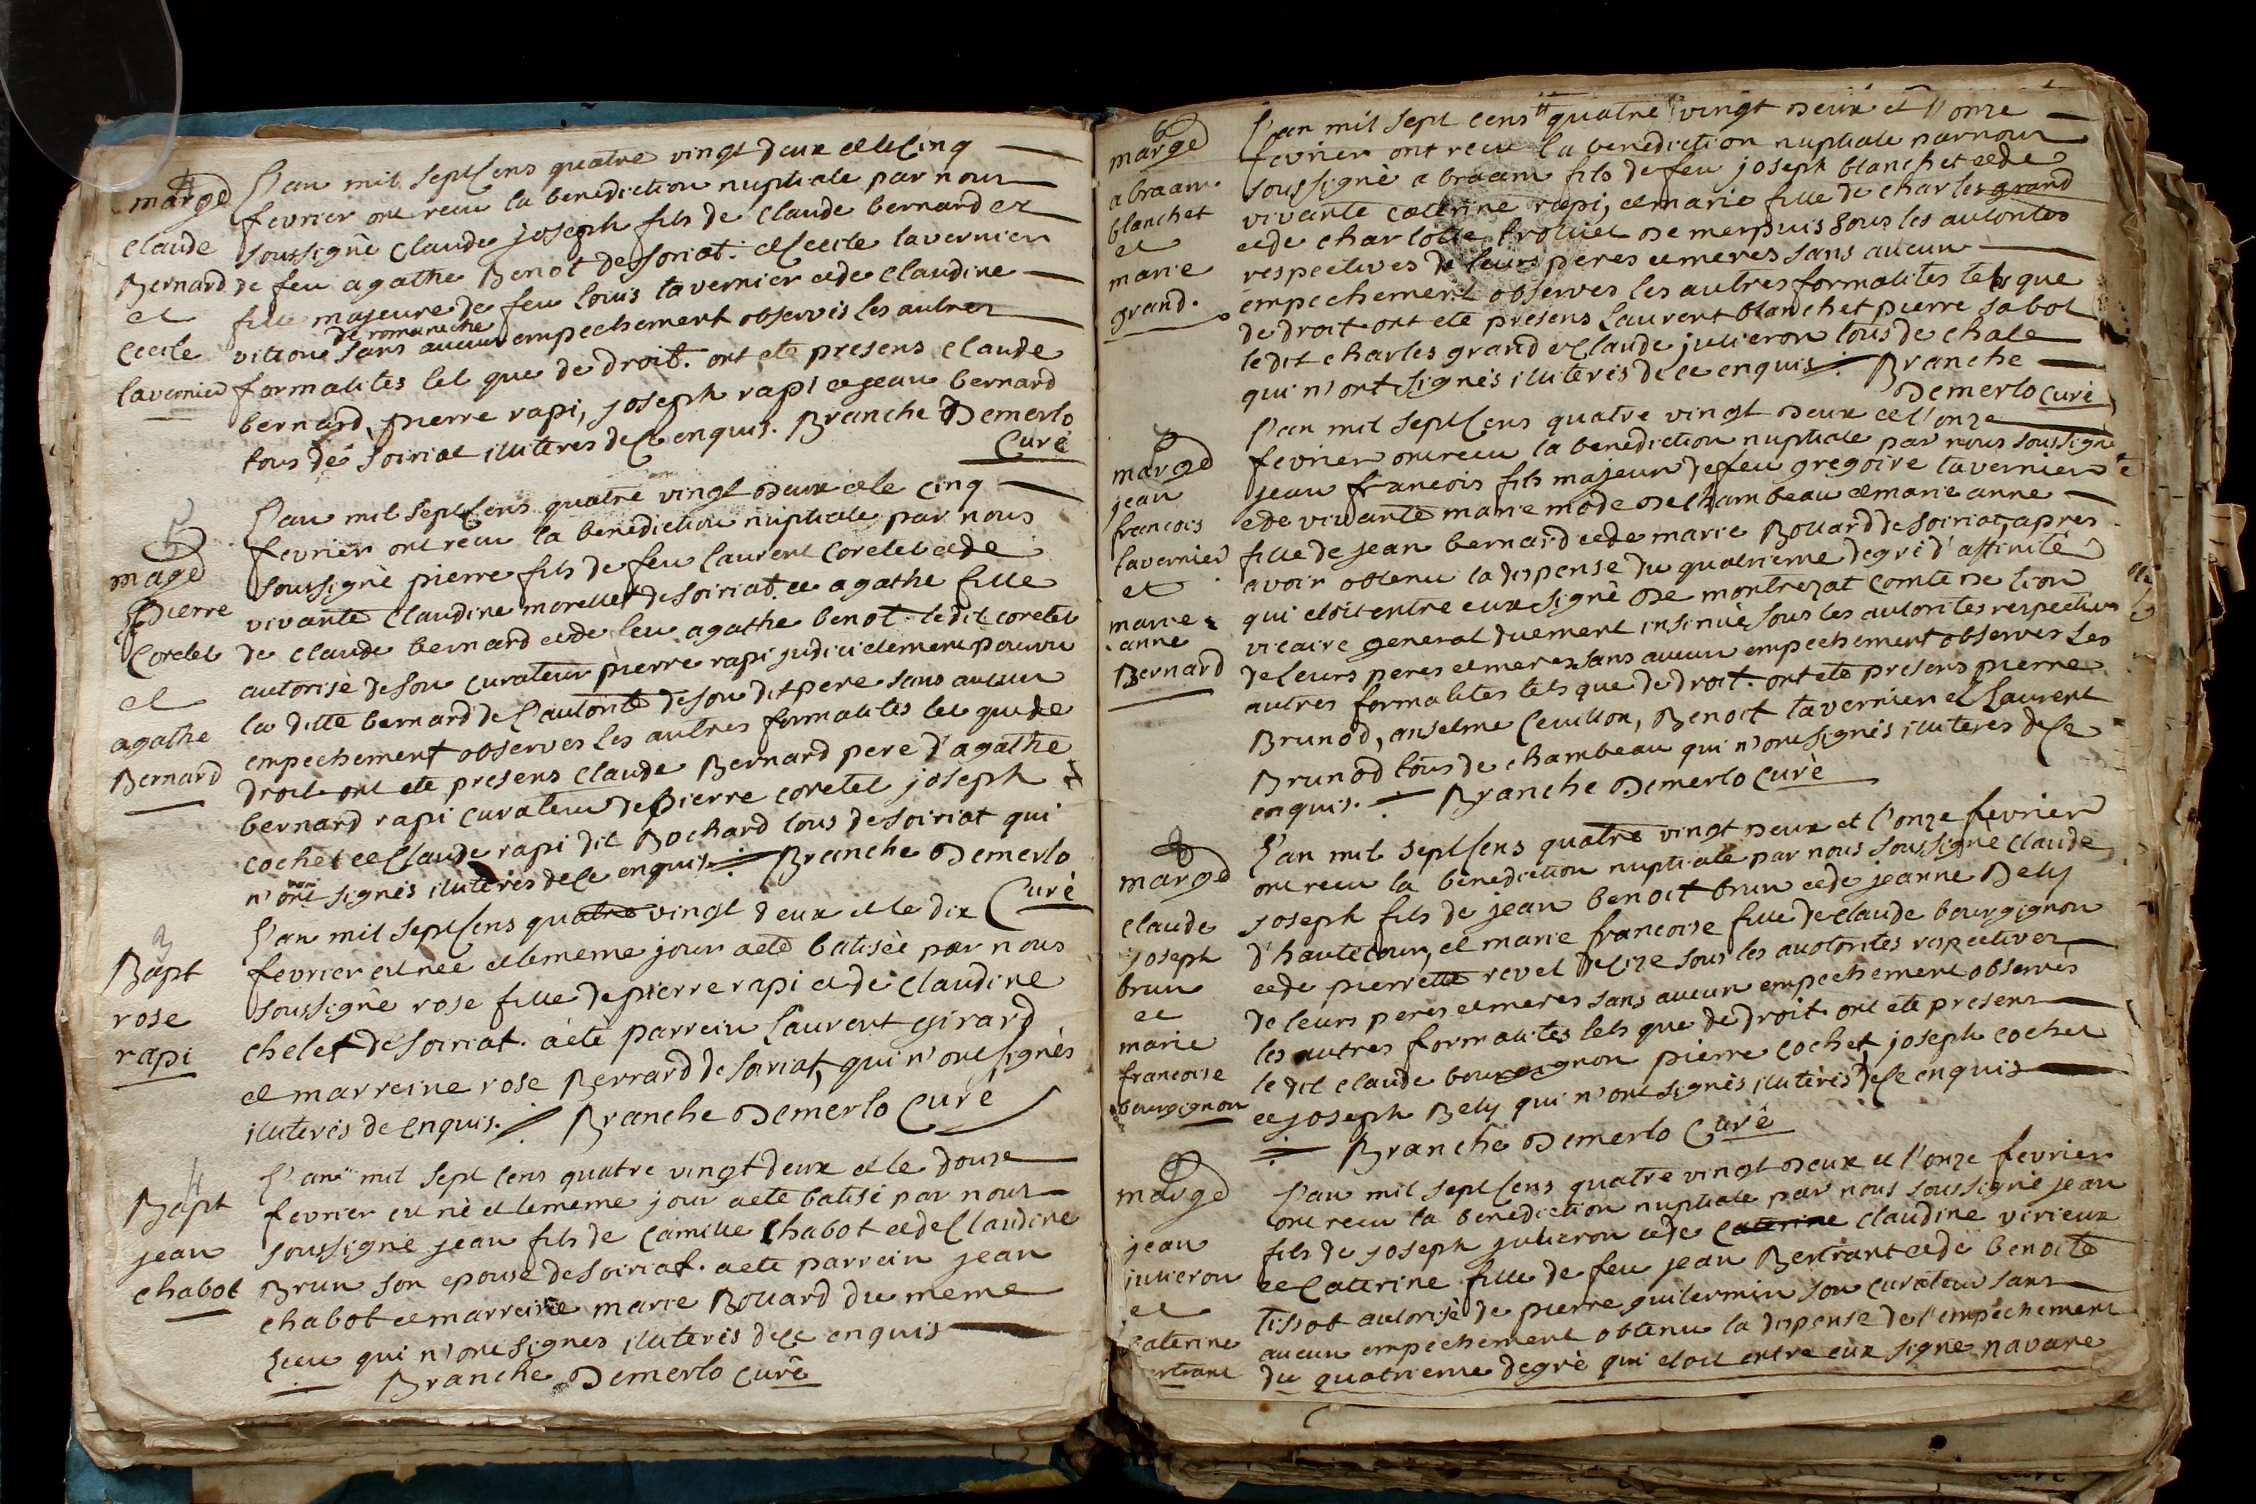 4
marge
claude
Bernard
et
cecile
tavernier
L'an mil sept cens quatre vingt deux et le cinq
fevrier ont recu la benediction nuptiale par nous
soussigné claude joseph fils de claude bernard et
de feu agathe Benot de soiriat. et cecile tavernier
fille majeure de feu louis tavernier et de claudine
de romaneche
vitione sans aucun empechement observés les autres
formalités tel que de droit. ont eté presens claude
bernard, pierre rapi, joseph rapi et jean bernard
tous de soiriat illiterés de ce enquis. Branche Demerlo
Curé
5
mage
Pierre
Coretet
et
agathe
Bernard
L'an mil sept cens quatre vingt deux et le cinq
fevrier ont recu la benediction nuptiale par nous
soussigné pierre fils de feu laurent coretet et de
vivante claudine morellet de soiriat. et agathe fille
de claude bernard et de feu agathe benot. le dit coretet
autorisé de son curateur pierre rapi judiciellement pourvu
la ditte bernard de l'autorité de son dit pere sans aucun
empechement observés les autres formalités tel que de
droit. ont eté presens claude Bernard pere d'agathe
bernard rapi curateur de pierre coretet joseph
cochet et claude rapi dit Bochard tous de soiriat qui
n'ont signés illiterés de ce enquis. Branche Demerlo
Curé
3
Bapt
rose
rapi
L'an mil sept cens quatre vingt deux et le dix
fevrier est née et le meme jour a eté batisée par nous
soussigné rose fille de pierre rapi et de claudine
chelet de soiriat. a eté parrein laurent girard
et marreine rose Berrard de soiriat, qui n'ont signés
illiterés de enquis. Branche Demerlo Curé
4
Bapt
jean
chabot
L'an mil sept cens quatre vingt deux et le douze
fevrier est né et le meme jour a eté batisé par nous
soussigné jean fils de camille chabot et de claudine
Brun son epouse de soiriat. a eté parrein jean
chabot et marreine marie Bouard du meme
lieu qui n'ont signés illiterés de ce enquis
Branche Demerlo curé
6
marge
abraam
blanchet
et
marie
grand.
L'an mil sept cens quatre vingt deux et l'onze
fevrier ont recu la benediction nuptiale par nous
soussigné abraam fils de feu joseph blanchet et de
vivante caterine rapi, et marie fille de charles grand
et de charlotte trolliet de merpuis sous les autorités
respectives de leurs peres et meres sans aucun
empechement observés les autres formalités tels que
de droit. ont eté presens laurent blanchet pierre sabot
le dit charles grand et claude julieron tous de chale
qui n'ont signés illiterés de ce enquis. Branche
Demerlo curé
7
marge
jean
francois
tavernier
et
marie
anne
Bernard
L'an mil sept cens quatre vingt deux et l'onze
fevrier ont recu la benediction nuptiale par nous soussigné
jean francois fils majeur de feu gregoire tavernier
et de vivante marie mode de chambeau et marie anne
fille de jean bernard et de marie Bouard de soiriat, apres
avoir obtenu la dispense du quatrieme degré d'affinité
qui etoit entre eux signé de montrezat comte de lion
vicaire general duement insinué sous les autorités respectives
de leurs peres et meres sans aucun empechement observés les
autres formalités tels que de droit. ont eté presens pierre
Brunod, anselme Cevillon, Benoit tavernier et laurent
Brunod tous de chambeau qui n'ont signés illiterés de ce
enquis. Branche Demerlo curé
8
marge
claude
joseph
brun
et
marie
francoise
bourgignon
L'an mil sept cens quatre vingt deux et l'onze fevrier
ont recu la benediction nuptiale par nous soussigné claude
joseph fils de jean benoit brun et de jeanne Bely
d'hautecour, et marie francoise fille de claude bourgignon
et de pierrette revel de cize sous les auotorités respectives
de leurs peres et meres sans aucun empechement observés
les autres formalités tels que de droit. ont eté presens
le dit claude bourgignon pierre cochet, joseph cochet
et joseph Bely qui n'ont signés illiterés de ce enquis
Branche Demerlo Curé
9
marge
jean
julieron
et
caterine
L'an mil sept cens quatre vingt deux et l'onze fevrier
ont recu la benediction nuptiale par nous soussigné jean
fils de joseph julieron et de caterine claudine virieux
et caterine fille de feu jean Bertrant et de benoite
tissot autorisé de pierre guilermin son curateur sans
aucun empechement obtenu la dispense de l'empechement
du quatrieme degré qui etoit entre eux signé navare